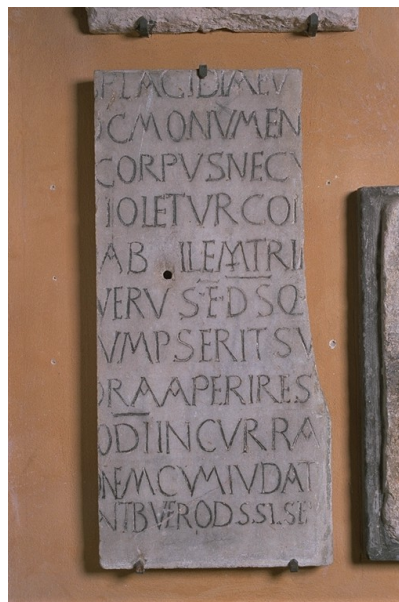 PLACIDI MEV
OC MONVMEN
CORPVS NEC V
IOLETVR CO
AB ILEM TRI
VERV S·E·D S Q
VMPSERIT SV
ORA APERIRE S
ODI INCVRRA
ONEM CVM IVDA